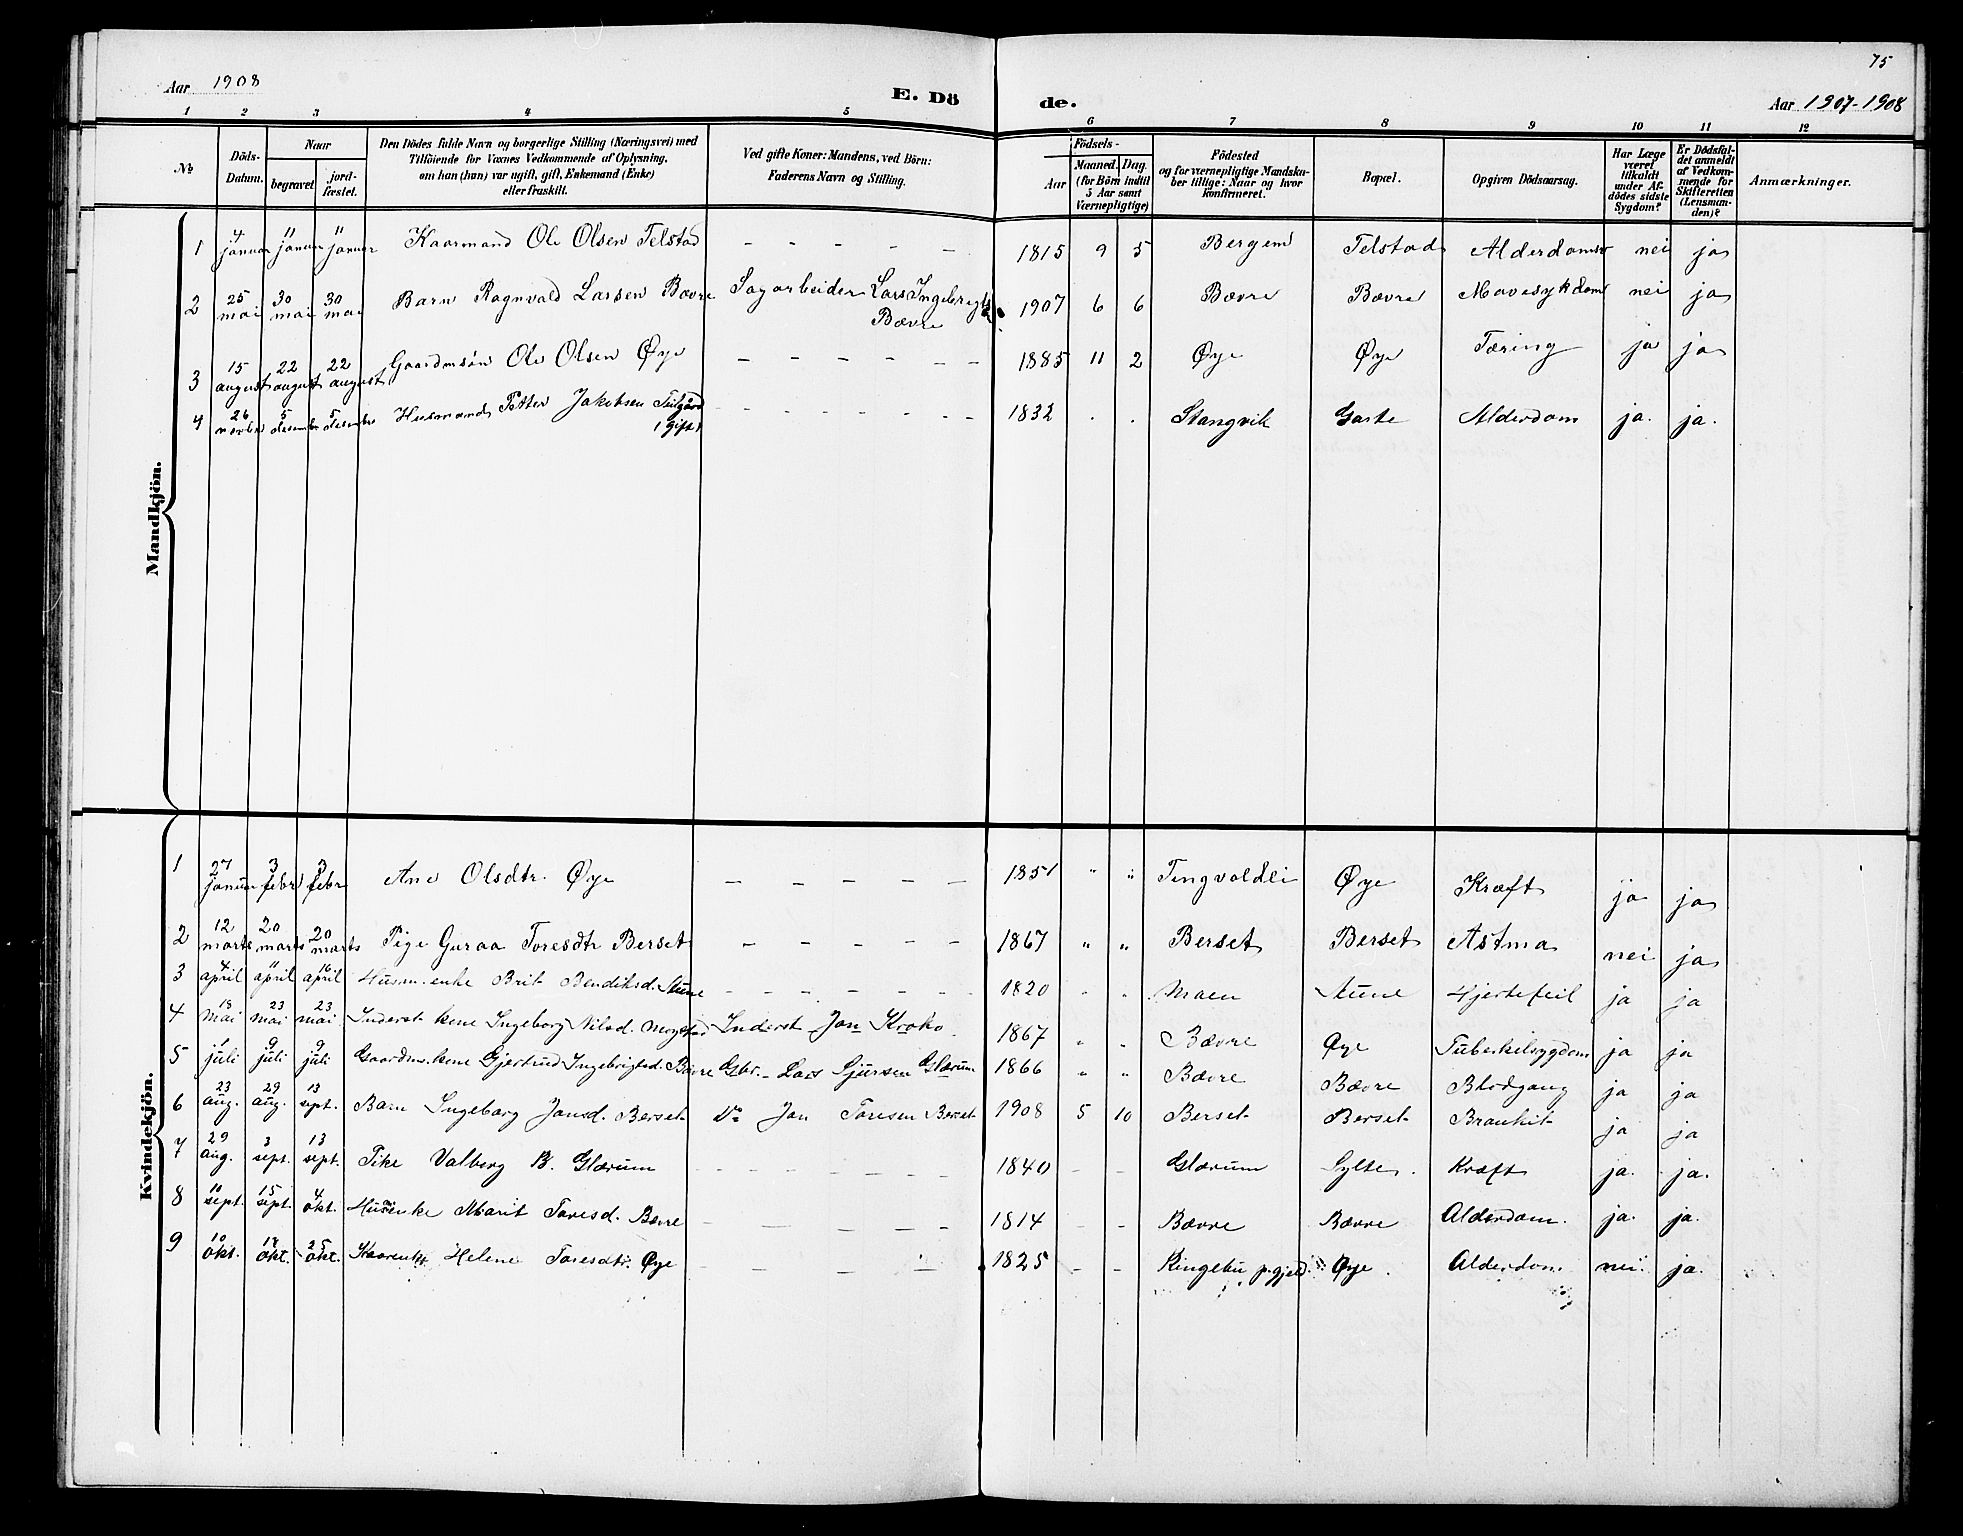 75
Aar 1908 E. Dö de. Aar 1907-1908
1 2 3 4 5 6 7 8 9 10 11 12
No.
Döds-Datum.
Naar
begravet.
jord-fæstet.
Den Dödes fulde Navn og borgerlige Stilling (Næringsvei) med
Tilföiende for Voxnes Vedkommende af Oplysning,
om han (hun) var ugift, gift, Enkemand (Enke)
eller fraskilt.
Ved gifte Koner: Mandens, ved Börn:
Faderens Navn og Stilling.
Födsels-
Aar
Maaned. Dag.
(for Börn indtil
5 Aar samt
Værnepligtige)
Födested
og for værnepligtige Mandska-
ber tillige: Naar og hvor
konfirmeret.
Bopæl.
Opgiven Dödsaarsag.
Har Læge
været
tilkaldt
under Af-
dödes sidste
Sygdom?
Er Dödsfal-
det anmeldt
af Vedkom-
mende for
Skifteretten
(Lensman-
den)?
Anmærkninger.
Mandkjön.
1 4 januar 11 januar 11 januar Kaarmand Ole Olsen Telstad - - - - - 1815 9 5 Bergem Telstad Alderdomsv nei ja
2 25 mai 30 mai 30 mai Barn Ragnvald Larsen Bævre Sagarbeider Lars Ingebrigts Bævre 1907 6 6 Bævre Bævre Mavesykdom nei ja
3 15 august 22 august 22 august Gaardmsön Ole Olsen Øye - - - - - 1885 11 2 Øye Øye Tæring ja ja
4 26 novbr 5 desembr 5 desembr Husmand Petter Jakobsen Teilgård (Gift) - - - - - - - 1832 . . Stangvik Gaste Alderdom ja. ja.
Kvindekjön.
1 27 januar 3 febr 3 febr Ane Olsdtr. Øye - - - - - 1851 " " Tingvoldli Øye Kræft ja ja
2 12 marts 20 marts 20 marts Pige Guraa Toresdtr Berset - - - - - 1867 " " Berset Berset Astma nei ja
3 4 april 11 april 16 april Husm.enke Brit Bendiksd. Aune - - - - - - 1820 " " Moen Aune Hjertefeil ja ja
4 18 mai 23 mai 23 mai Inderst kone Ingeborg Nilsd. Mogstad Inderst Jon Kroko. 1867 " " Bævre Øye Tuberkelsygdom ja ja
5 1 juli 9 juli 9 juli Gaardm.kone Gjertrud Ingebrigtsd. Bævre Gbr. Lars Sjursen Glærum 1866 " " Bævre Bævre Blodgang ja ja
6 23 aug. 29 aug. 13 sept. Barn Ingeborg Jonsd. Berset Do Jon Toresen Berset 1908 5 10 Berset Berset Bronkit ja ja
7 29 aug. 3 sept. 13 sept. Pike Valborg B. Glærum - - - - - - 1840 - - Glærum Sylte. Kræft ja. ja.
8 10 sept. 15 sept. 4 okt. Husm.enke Marit Toresd. Bævre - - - - - 1814 - - Bævre Bævre Alderdom. ja. ja.
9 10 okt. 18 okt. 25 okt. Kaarenke Helene Toresdtr. Øye - - - - 1825 - - Ringebu p.gjeld. Øye. Alderdom. nei. ja.